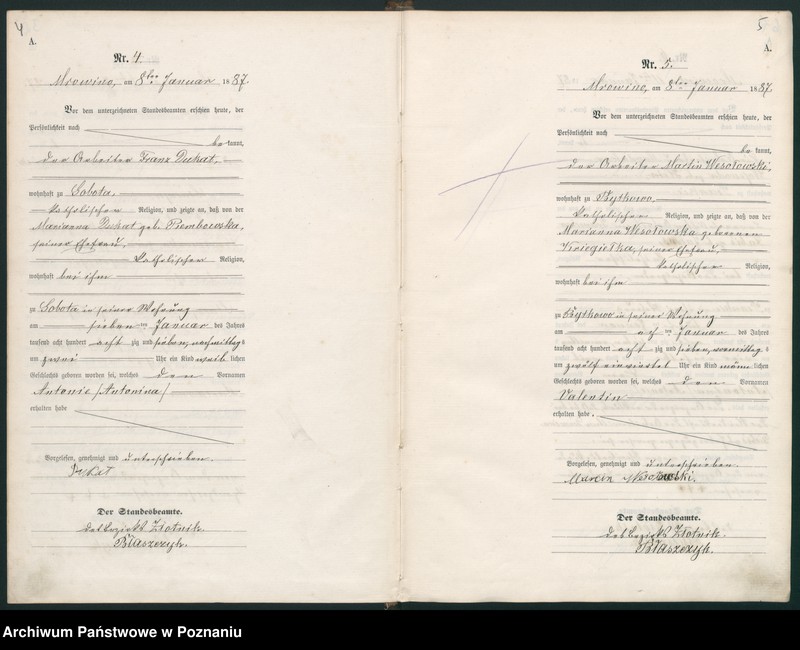 4
A.
Nr. 4.
Mrowino, am 8ten Januar 1887.
Vor dem unterzeichneten Standesbeamten erschien heute, der
Persönlichkeit nach
be kannt,
der Arbeiter Franz Dukat,
wohnhaft zu Sobota,
katholischer Religion, und zeigte an, daß von der
Marianna Dukat geb. Rembowska,
seiner Ehefrau,
katholischer Religion,
wohnhaft bei ihm
zu Sobota in seiner Wohnung
am sieben ten Januar des Jahres
tausend acht hundert acht zig und sieben, nachmittags
um zwei Uhr ein Kind weib lichen
Geschlechts geboren worden sei, welches den Vornamen
Antonie /Antonina/
erhalten habe
Vorgelesen, genehmigt und unterschrieben.
Dukat
Der Standesbeamte.
des Bezirks Złotnik.
Błaszczyk.
5
A.
Nr. 5.
Mrowino, am 8ten Januar 1887.
Vor dem unterzeichneten Standesbeamten erschien heute, der
Persönlichkeit nach
be kannt,
der Arbeiter Martin Wesołowski,
wohnhaft zu Bytkowo,
katholischer Religion, und zeigte an, daß von der
Marianna Wesołowska geborenen
seiner Ehefrau,
katholischer Religion,
wohnhaft bei ihm
zu Bytkowo in seiner Wohnung
am ach ten Januar des Jahres
tausend acht hundert acht zig und sieben, vormittag s
um zwölf einviertel Uhr ein Kind männ lichen
Geschlechts geboren worden sei, welches den Vornamen
Valentin
erhalten habe.
Vorgelesen, genehmigt und unterschrieben.
Marcin Wesołowski.
Der Standesbeamte.
des Bezirks Złotnik.
Błaszczyk.
Archiwum Państwowe w Poznaniu